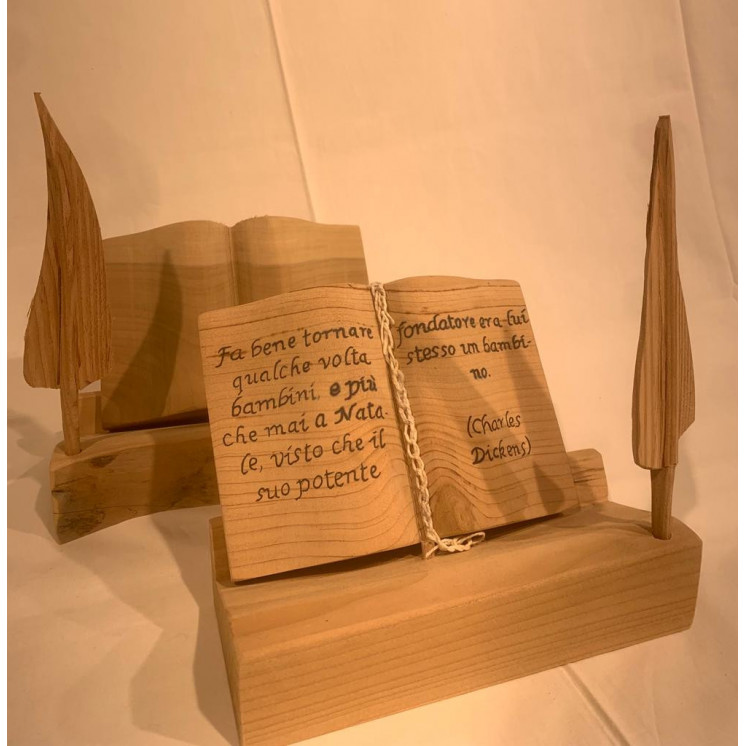 Fa bene tornare
qualche volta
bambini, e più
che mai a Nata-
le, visto che il
suo potente
fondatore era lui
stesso un bambi-
no.
(Charles
Dickens)